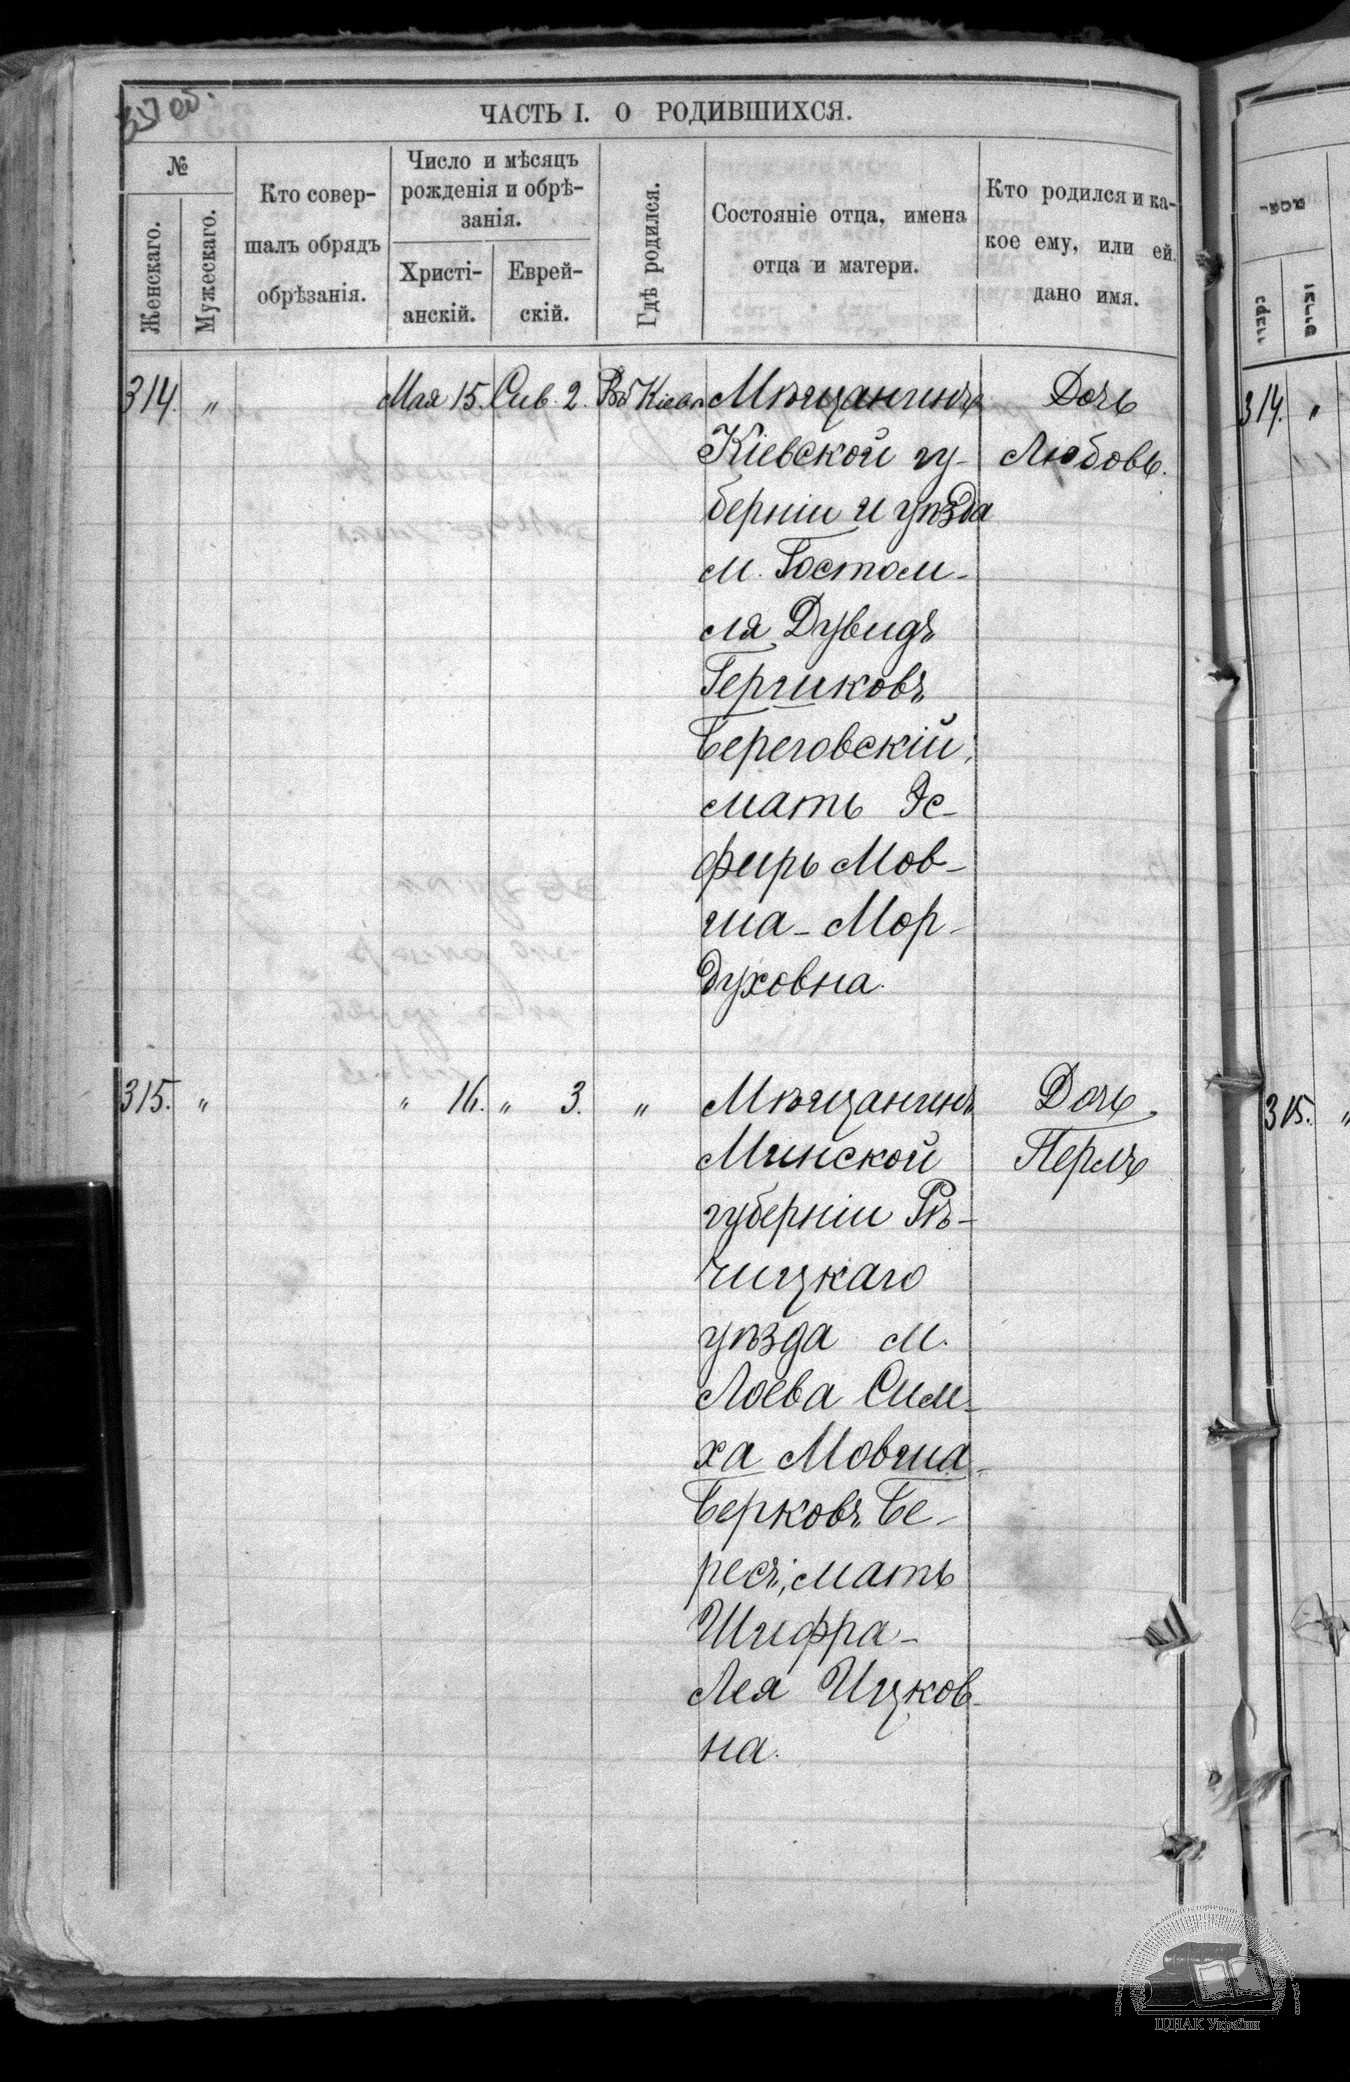 ЧАСТЬ I. О РОДИВШИХСЯ.
№
Женскаго.
Мужескаго.
Кто совер-
шалъ обрядъ
обрѣзанія.
Число и мѣсяцъ
рожденія и обрѣ-
занія.
Христі-
анскій.
Еврей-
скій.
Гдѣ родился.
Состояніе отца, имена
отца и матери.
Кто родился и ка-
кое ему, или ей
дано имя.
314. " Мая 15. Сив. 2. Въ Кіевѣ Мѣщанинъ Дочь
Кіевской гу- Любовь.
берніи и уѣзда
м. Гостом-
ля Дувидъ
Гершковъ
Береговскій,
мать Эс-
фирь Мов-
ша-Мор-
духовна.
315. " " 16. " 3. " Мѣщанинъ Дочь
Минской Перлъ
губерніи Рѣ-
чицкаго
уѣзда м.
Лоева Сим-
ха Мовша-
Берковъ Бе-
ресъ, мать
Шифра-
Лея Ицков-
на.
נקבות
זכרים
314. "
315. "
ЦДІАК України